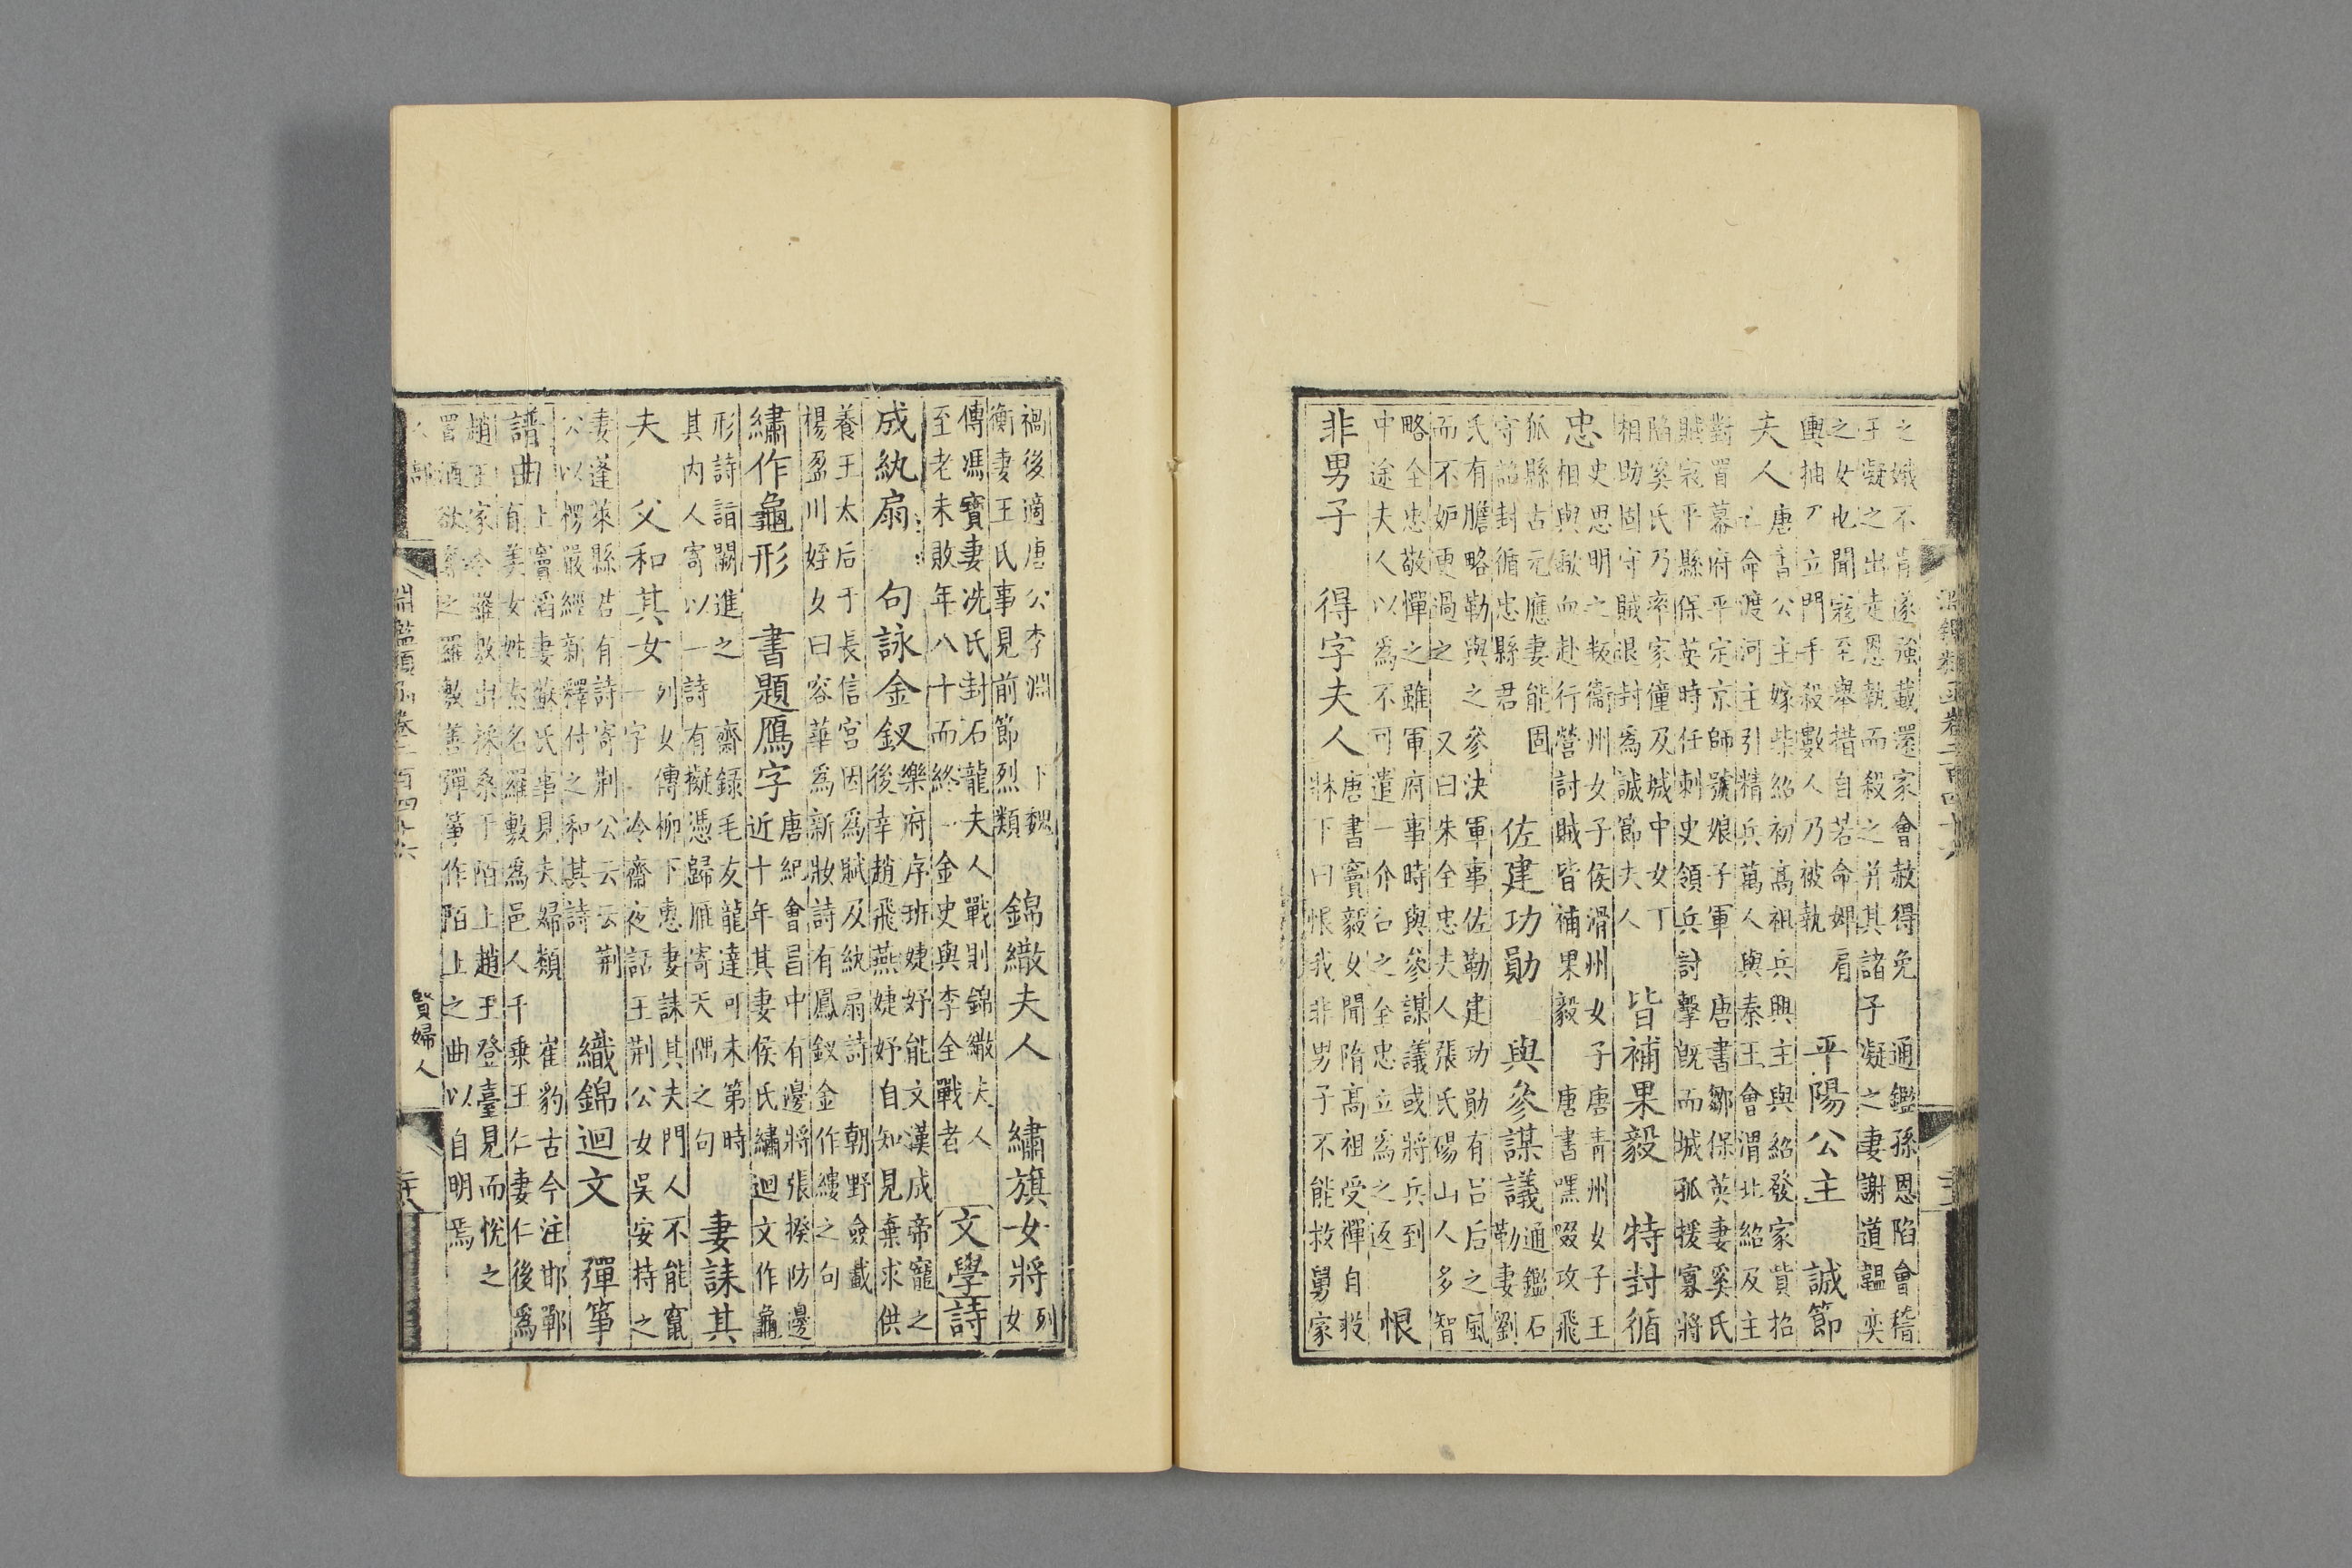 之娥不肯遂強載還家會赦得免 通鑑孫恩陷會稽
王凝之出走恩執而殺之并其諸子 凝之妻謝道韞奕
之女也聞寇至舉措自若命婢肩
輿抽刀立門手殺數人乃被執
平陽公主 誠節
夫人
唐書公主嫁柴紹初高祖兵興主與紹發家貲招
亡命渡河主引精兵萬人與秦王會渭北紹及主
對置幕府平定京師號娘子軍 唐書鄒保英妻奚氏
賊寇平縣保英時任刺史領兵討擊既而城孤援寡將
陷奚氏乃率家僮及城中女丁
相助固守賊退封為誠節夫人
皆補果毅 特封循
忠
史思明之叛衞州女子侯滑州女子唐青州女子王
相與歃血赴行營討賊皆補果毅 唐書嘿啜攻飛
狐縣古元應妻能固
守詔封循忠縣君
佐建功勛 與參謀議
通鑑石
勒妻劉
氏有膽略勒與之參決軍事佐勒建功勛有呂后之風
而不妒更過之 又曰朱全忠夫人張氏碭山人多智
略全忠敬憚之雖軍府事時與參謀議或將兵到
中途夫人以為不可遣一介召之全忠立為之返
恨
非男子 得字夫人
唐書竇毅女聞隋高祖受禪自投
牀下曰恨我非男子不能救舅家
禍後適唐公李淵 下魏
衡妻王氏事見前節烈類
錦繖夫人 繡旗女將
列
女
傳馮寶妻冼氏封石龍夫人戰則錦繖夫人
至老未敗年八十而終 一金史與李全戰者
文學 詩
成紈扇 句詠金釵
樂府序班婕妤能文漢成帝寵之
後幸趙飛燕婕妤自知見棄求供
養王太后于長信宮因為賦及紈扇詩 朝野僉載
楊盈川姪女曰容華為新妝詩有鳳釵金作縷之句
繡作龜形 書題鴈字
唐紀會昌中有邊將張揆防邊
近十年其妻侯氏繡迴文作龜
形詩詣闕進之 齋錄毛友龍達可未第時
其内人寄以一詩有擬憑歸雁寄天隅之句
妻誄其
夫 父和其女
列女傳柳下惠妻誄其夫門人不能竄
一字 冷齋夜話王荊公女吳安持之
妻蓬萊縣君有詩寄荊公云云荊
公以楞嚴經新釋付之和其詩
織錦迴文 彈箏
譜曲
上竇滔妻蘇氏事見夫婦類 崔豹古今注邯鄲
有美女姓秦名羅敷為邑人千乘王仁妻仁後為
趙王家令羅敷出採桑于陌上趙王登臺見而悅之
置酒欲奪之羅敷善彈箏作陌上之曲以自明焉
人部
淵鑑類函卷二百四十六
賢婦人